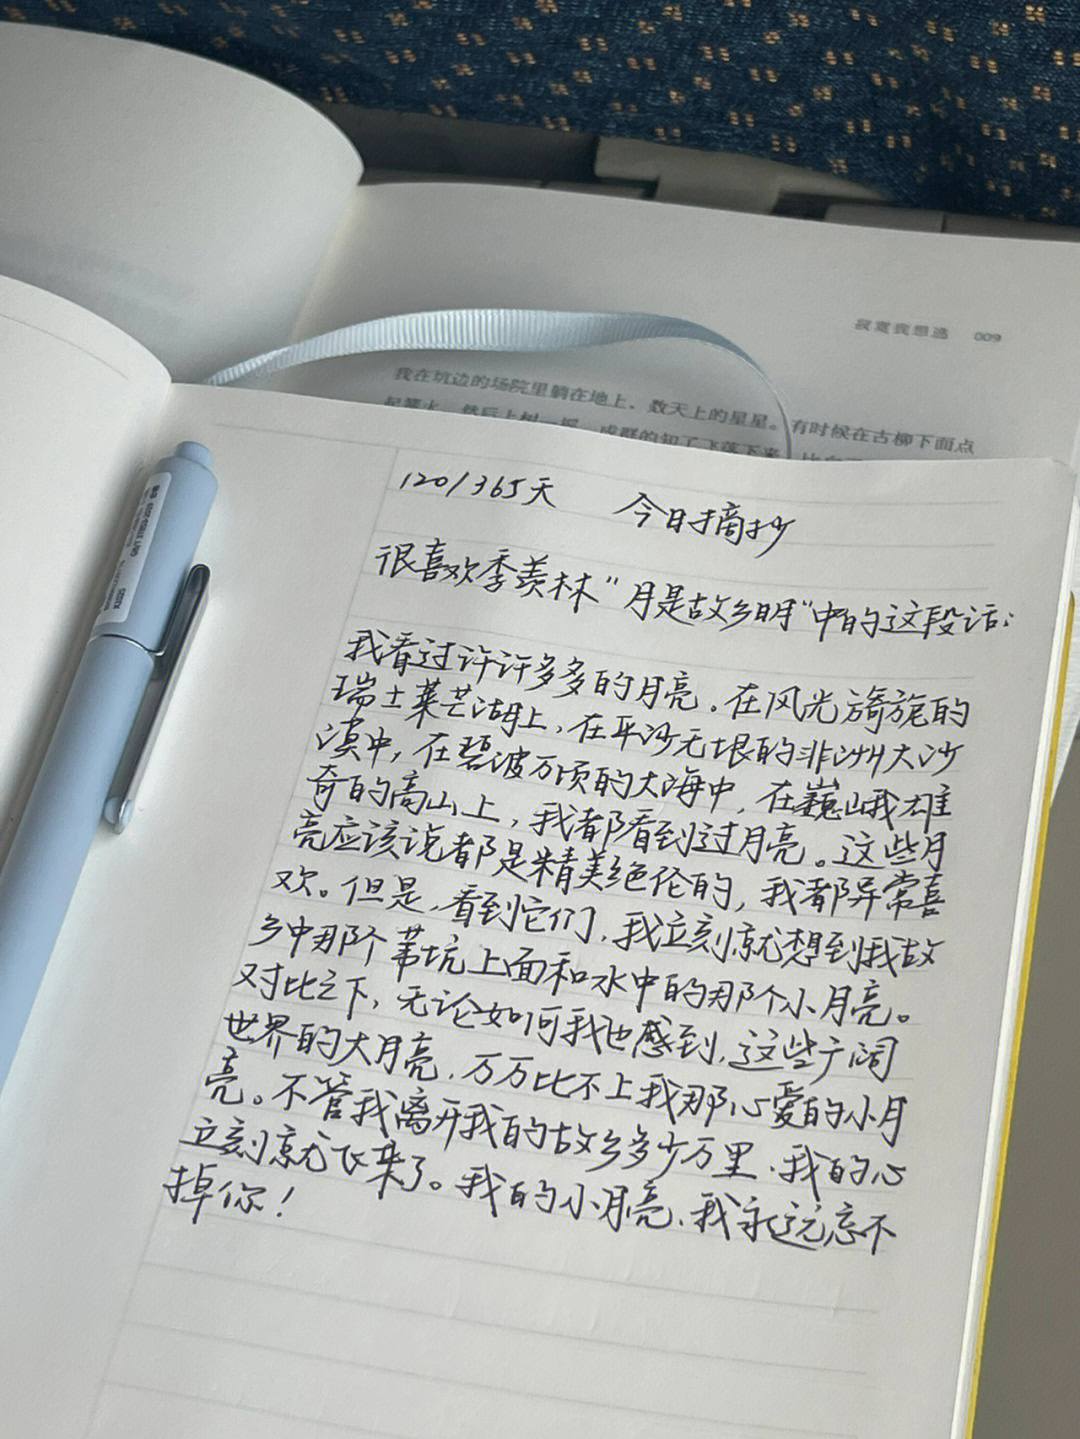 009
我在坑边的场院里躺在地上,数天上的星星。有时候在古柳下面点
起篝火,然后上树一摇,成群的知了飞落下来
120/365天 今日摘抄
很喜欢季羡林"月是故乡明"中的这段话:
我看过许许多多的月亮。在风光旖旎的
瑞士莱芒湖上,在平沙无垠的非洲大沙
漠中,在碧波万顷的大海中,在巍峨雄
奇的高山上,我都看到过月亮。这些月
亮应该说都是精美绝伦的,我都异常喜
欢。但是,看到它们,我立刻就想到我故
乡中那个苇坑上面和水中的那个小月亮。
对比之下,无论如何我也感到,这些广阔
世界的大月亮,万万比不上我那心爱的小月
亮。不管我离开我的故乡多少万里,我的心
立刻就飞来了。我的小月亮,我永远忘不
掉你!